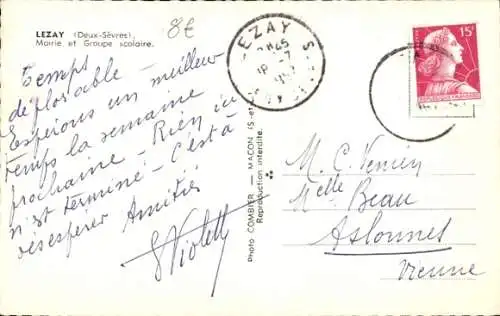 LEZAY (Deux-Sèvres).
Mairie et Groupe scolaire.
8€
Temps
déplorable -
Espérons un meilleur
temps la semaine
prochaine - Rien ici
n'est terminé - C'est à
désespérer Amitiés
Violette
Photo COMBIER MACON (S.-et-L.)
Reproduction interdite.
LEZAY
15F
M. C. Vernier
Melle Beau
Aslonnes
Vienne